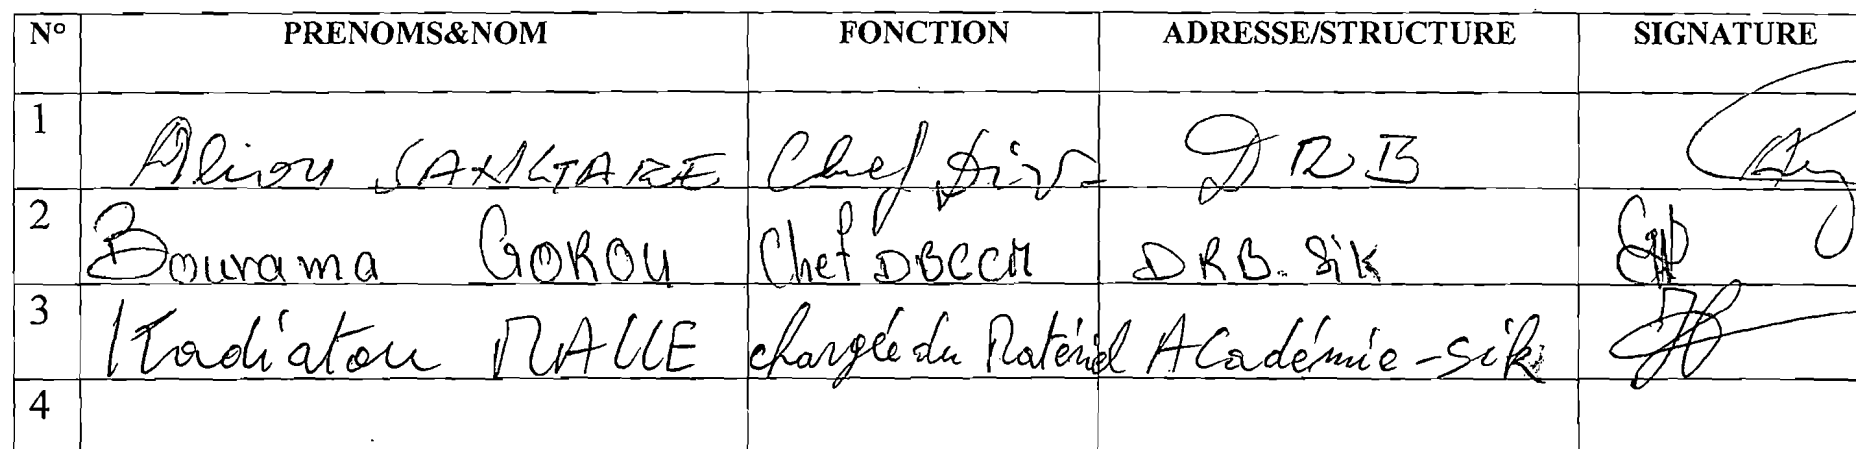 N° PRENOMS&NOM FONCTION ADRESSE/STRUCTURE SIGNATURE
1 Aliou Chef Div. DRB
2 Bourama GOROU Chef DBCCM DRB. Sik
3 Kadiatou MALLE chargée du Matériel Académie-Sik
4